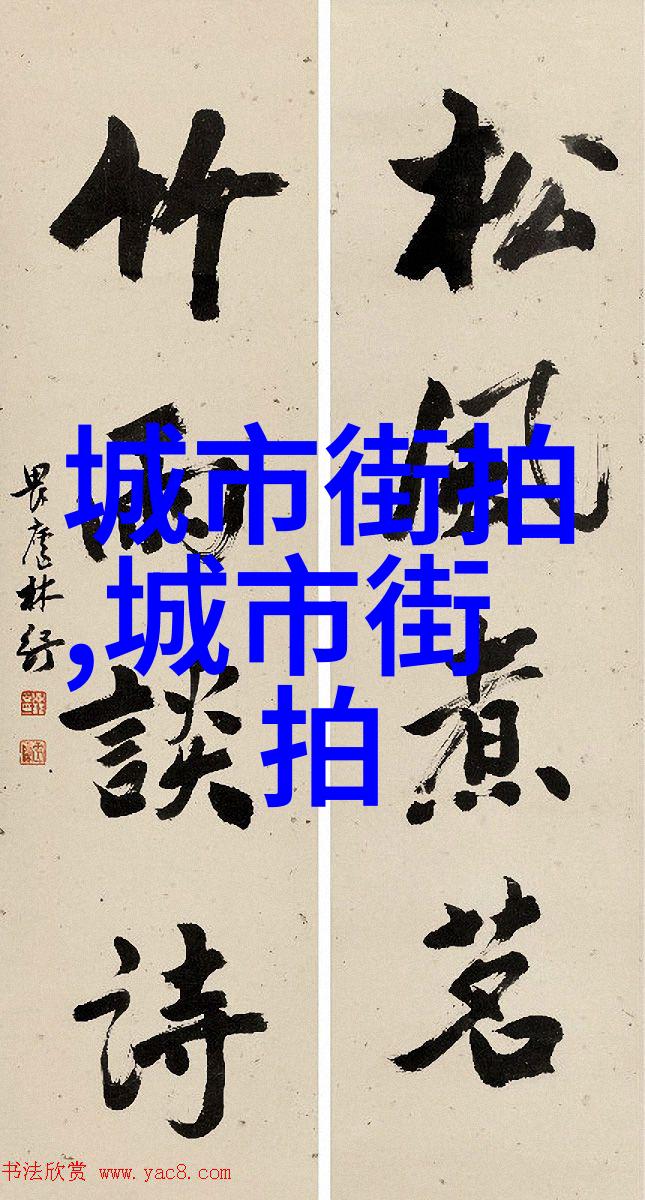 松風煮茗
竹雨談詩
畏廬林紓
城市街拍
,城市街
拍
书法欣赏 www.yac8.com